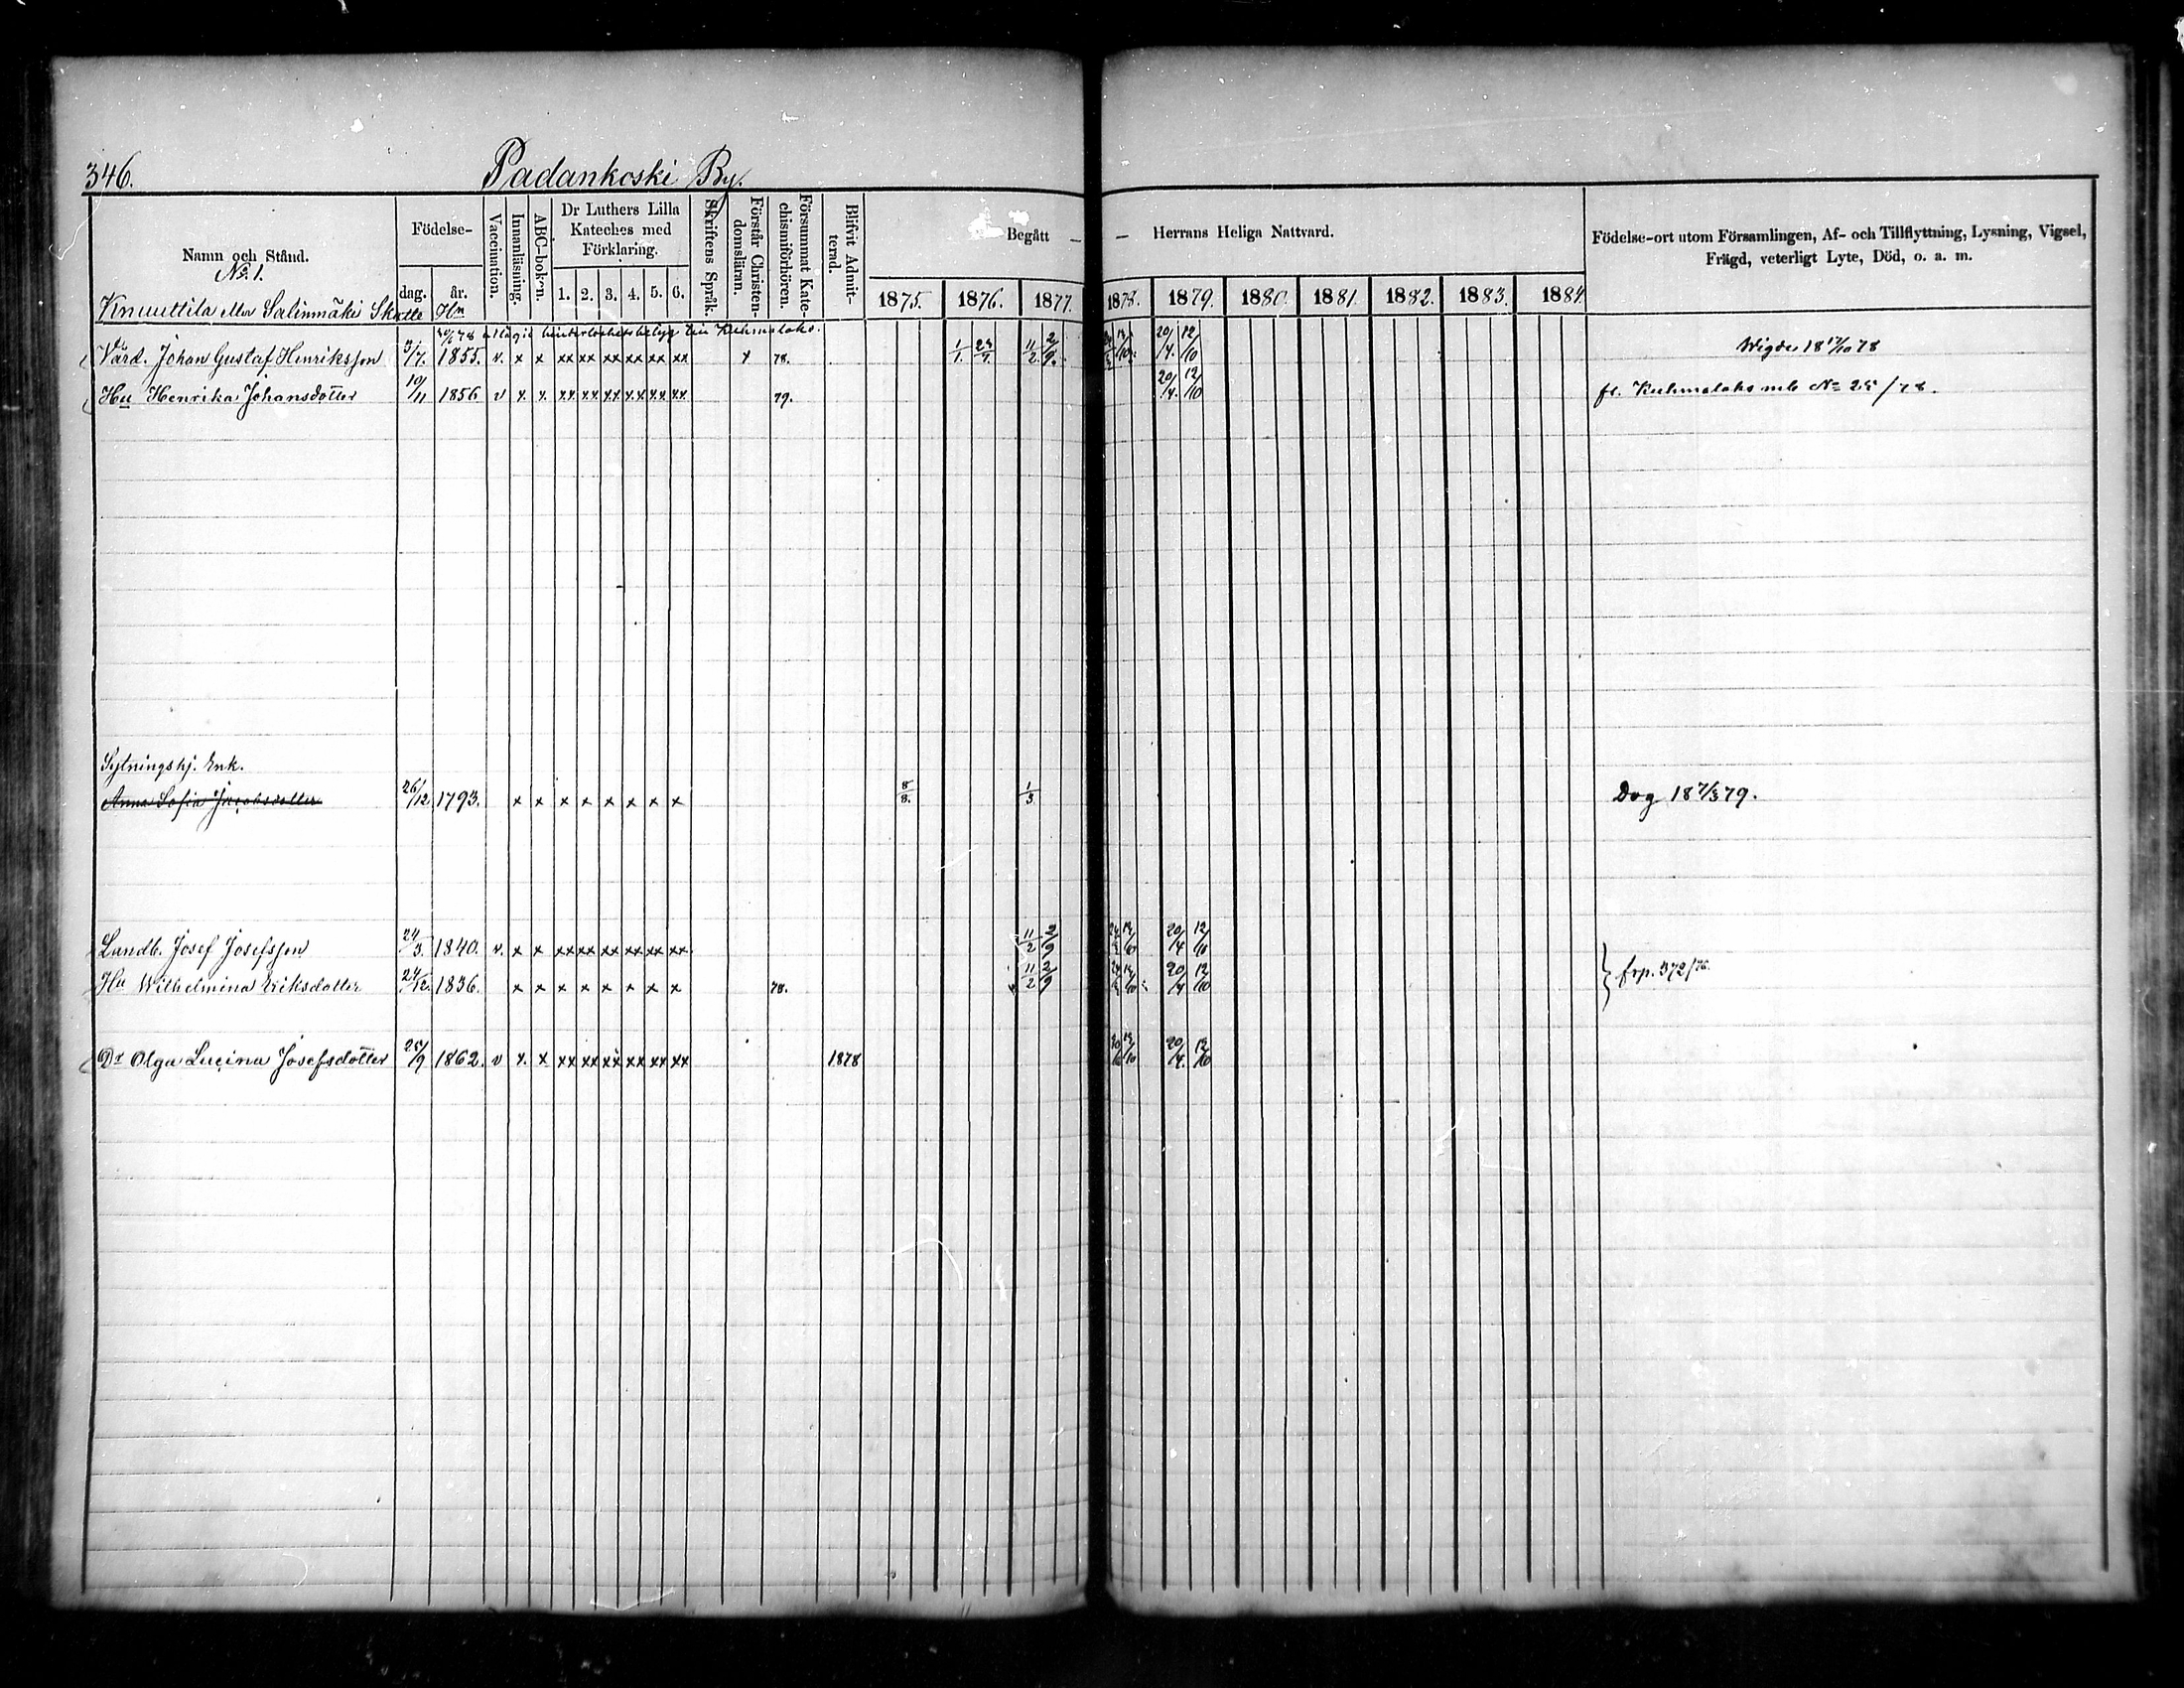 346.
Padankoski By.
Namn och Stånd.
Födelse-
dag.
år.
Vaccination.
Innanläsning.
ABC-boken.
Dr Luthers Lilla Kateches med Förklaring.
1. 2. 3. 4. 5. 6.
Skriftens Språk.
Förstår Christendomsläran.
Försummat Katechismiförhören.
Blifvit Admitterad.
Begått — — Herrans Heliga Nattvard.
1875. 1876. 1877. 1878. 1879. 1880. 1881. 1882. 1883. 1884.
Födelse-ort utom Församlingen, Af- och Tillflyttning, Lysning, Vigsel,
Frägd, veterligt Lyte, Död, o. a. m.
No. 1.
Knuuttila eller Salinmäki Skatte Hn
Kuhmalaks.
Värd. Johan Gustaf Henriksson 3/7. 1855. v. x x xx xx xx xx xx xx x 78. 1/1. 11/2. 2/9. 20/4. 12/10 Wigde 18 17/10 78
Hu Henrika Johansdotter 10/11 1856 v x x. xx xx xx xx xx xx 79. 20/4. 12/10 fr. Kuhmalaks mb No 25/78.
Sytningshj. Enk.
Anna Sofia Jacobsdotter 26/12. 1793. x x x x x x x x 8/8. 1/3 Dog 18 7/3 79.
Landb. Josef Josefsson 24/3. 1840. v. x x xx xx xx xx xx xx. 11/2 2/9 20/4 12/10
Hu Wilhelmina Eriksdotter 24/12. 1836. x x x x x x x x 78. 11/2 2/9 20/4 12/10 frp. 372/76.
Dr Olga Lucina Josefsdotter 25/9 1862. v x. x xx xx xx xx xx xx 1878 20/4. 12/10